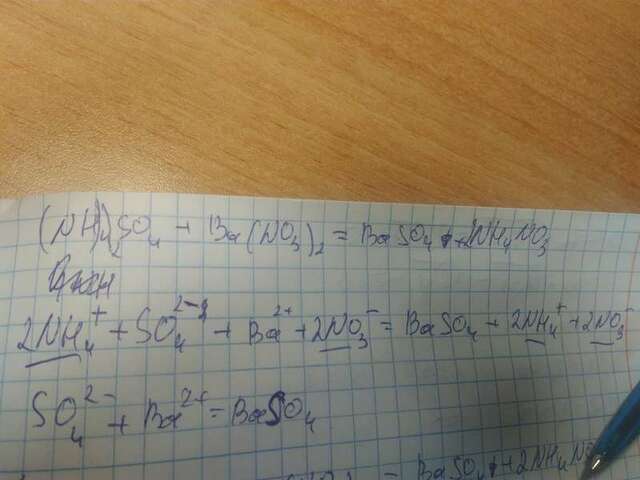 (NH₄)₂SO₄ + Ba(NO₃)₂ = BaSO₄ + 2NH₄NO₃
2NH₄⁺ + SO₄²⁻ + Ba²⁺ + 2NO₃⁻ = BaSO₄ + 2NH₄⁺ + 2NO₃⁻
SO₄²⁻ + Ba²⁺ = BaSO₄
= BaSO₄ + 2NH₄N